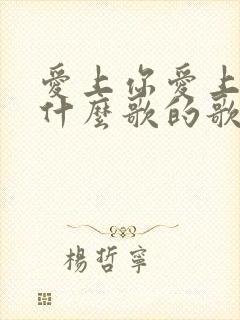 愛上你愛上
什麼歌的歌
楊哲寧